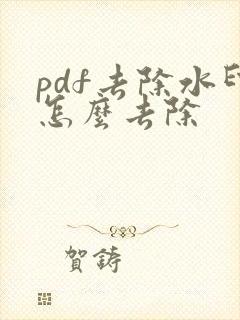 pdf去除水印
怎麼去除
賀鋳